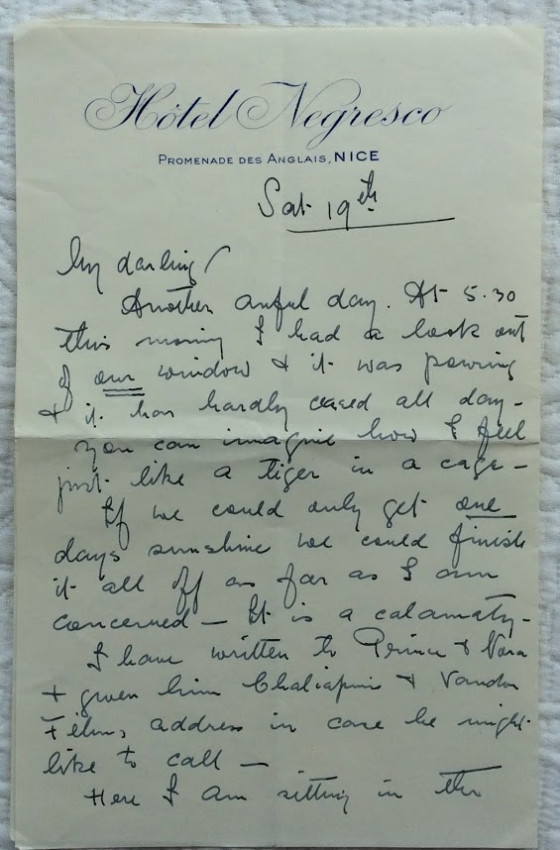 Hôtel Negresco
PROMENADE DES ANGLAIS, NICE
Sat 19th
My darling
Another awful day. At 5.30
this morning I had a look out
of our window & it was pouring
& it has hardly ceased all day -
You can imagine how I feel
just like a tiger in a cage -
If we could only get one
days sunshine we could finish
it all off as far as I am
concerned - It is a calamaty -
I have written to Prince &
& given him Chaliapin's &
Films address in case he might
like to call -
Here I am sitting in the